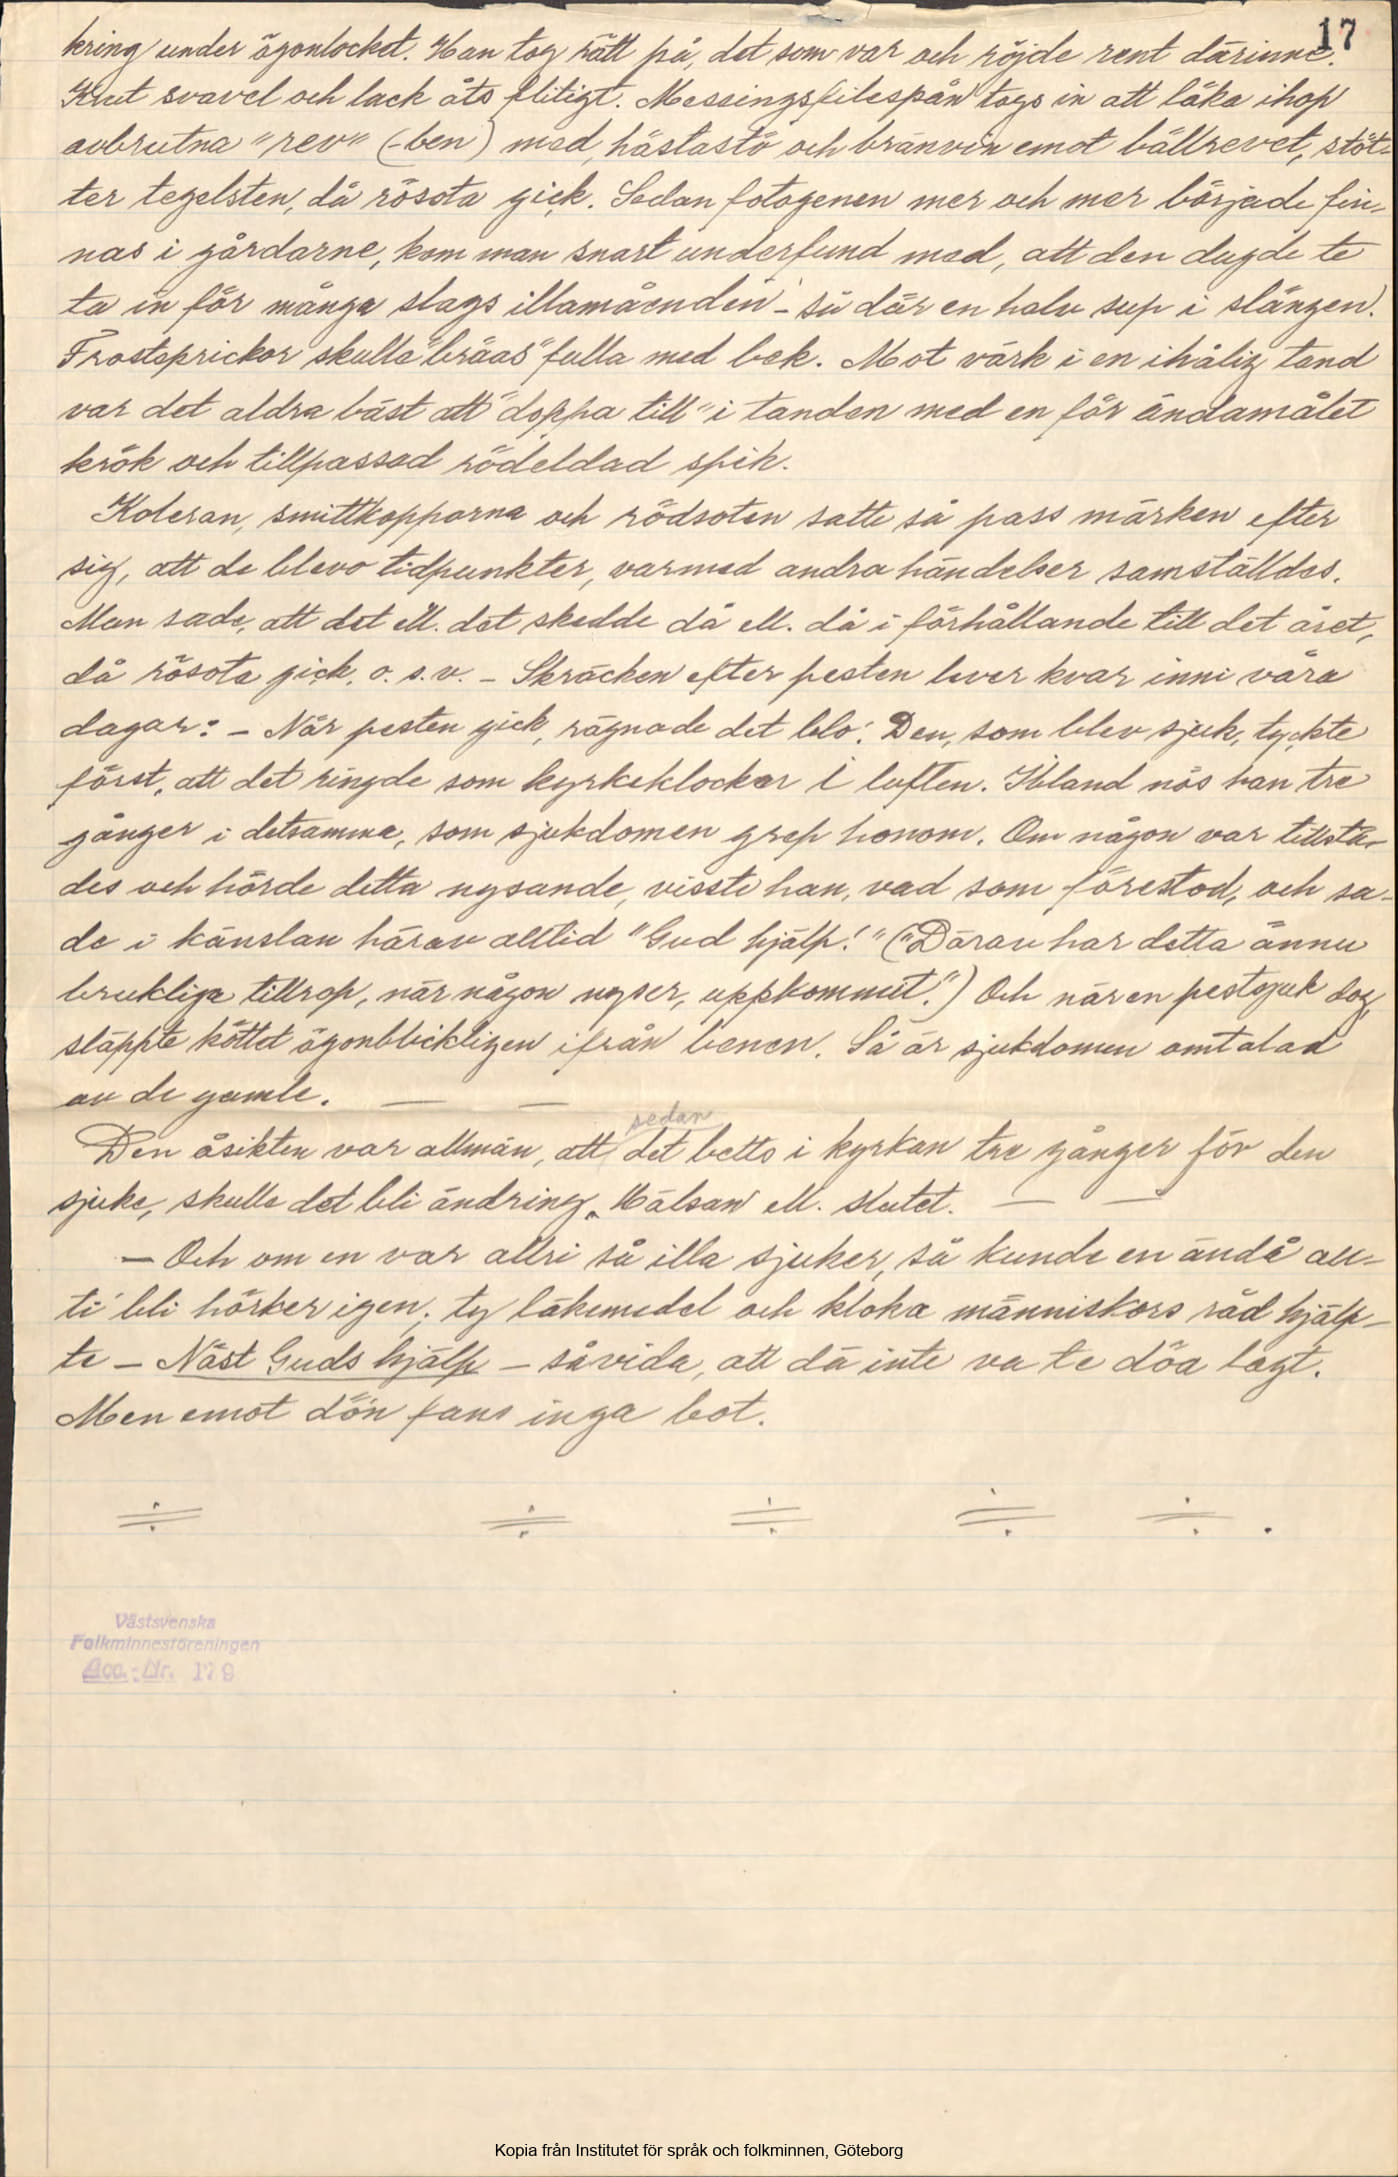 17
kring under ögonlocket. Han tog rätt på, det som var och röjde rent därinne.
Krut svavel och lack åts flitigt. Messingsfilespån togs in att läka ihop
avbrutna "rev" (-ben) med, hästastö och bränvin emot bällrevet, stöt-
ter tegelsten, då rösota gick. Sedan fotogenen mer och mer började fin-
nas i gårdarne, kom man snart underfund med, att den dugde te
ta in för många slags illamåenden - su där en halv sup i slängen.
Frostsprickor skulle "bräas" fulla med bek. Mot värk i en ihålig tand
var det aldra bäst att "doppa till" i tanden med en för ändamålet
krök och tillpassad rödeldad spik.
Koleran, smittkopporna och rödsoten satte så pass märken efter
sig, att de blevo tidpunkter, varmed andra händelser samställdes.
Man sade, att det ell. det skedde då ell. då i förhållande till det året,
då rösota gick. o. s. v. - Skräcken efter pesten lever kvar inni våra
dagar: - När pesten gick, rägnade det blo. Den, som blev sjuk, tyckte
först, att det ringde som kyrkeklocker i luften. Ibland nös han tre
gånger i detsamma, som sjukdomen grep honom. Om någon var tillstä-
des och hörde detta nysande, visste han, vad som förestod, och sa-
de i känslan härav alltid "Gud hjälp!" ("Därav har detta ännu
brukliga tillrop, när någon nyser, uppkommit.") Och när en pestsjuk dog,
släppte köttet ögonblickligen ifrån benen. Så är sjukdomen omtalad
av de gamle. — —
sedan
Den åsikten var allmän, att det betts i kyrkan tre gånger för den
sjuke, skulle det bli ändring. Hälsan ell. slutet. — —
— Och om en var allri så illa sjuker, så kunde en ändå all-
ti bli hörker igen; ty läkemedel och kloka människors råd hjälp-
te - Näst Guds hjälp - såvida, att dä inte va te döa lagt.
Men emot dö'n fans inga bot.
Västsvenska
Folkminnesföreningen
Acc.-Nr. 179
Kopia från Institutet för språk och folkminnen, Göteborg